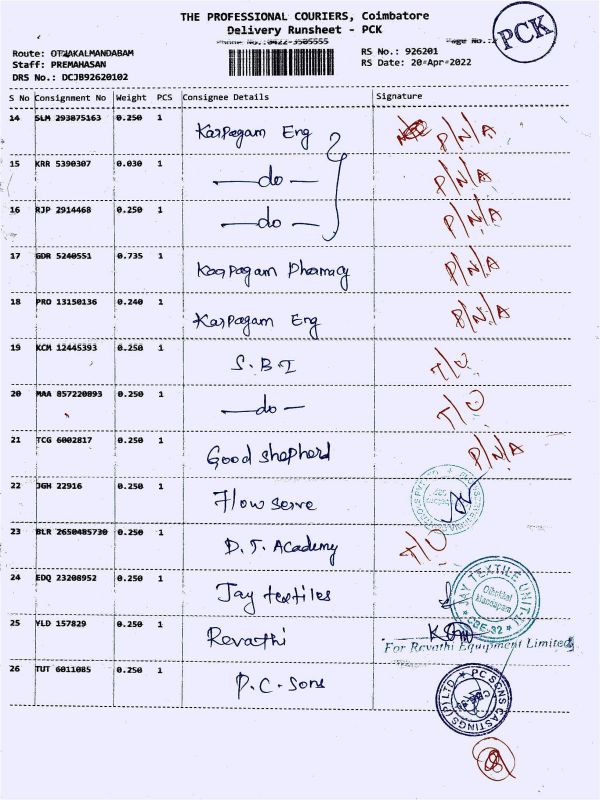 THE PROFESSIONAL COURIERS, Coimbatore
Delivery Runsheet - PCK
Phone No.:0422-3505555
Page No.:2
PCK
Route: OTHAKALMANDABAM
Staff: PREMAHASAN
DRS No.: DCJB92620102
RS No.: 926201
RS Date: 20-Apr-2022
S No Consignment No Weight PCS Consignee Details Signature
14 SLM 293875163 0.250 1 Karpagam Eng P/N/A
15 KRR 5390307 0.030 1 —do— P/N/A
16 RJP 2914468 0.250 1 —do— P/N/A
17 GDR 5240551 0.735 1 Karpagam Pharmacy P/N/A
18 PRO 13150136 0.240 1 Karpagam Eng P/N/A
19 KCM 12445393 0.250 1 S.B.I T/O
20 MAA 857220893 0.250 1 —do— T/O
21 TCG 6002817 0.250 1 Good shepherd P/N/A
22 JGH 22916 0.250 1 Flow serve
23 BLR 2650485730 0.250 1 D.J. Academy T/O
24 EDQ 23208952 0.250 1 Jay textiles
JAY TEXTILE UNIT-II
Othakkal
Mandapam
* CBE-32 *
25 YLD 157829 0.250 1 Revathi
For Revathi Equipment Limited
26 TUT 6011085 0.250 1 P.C. Sons
PC SONS CASTINGS (P) LTD